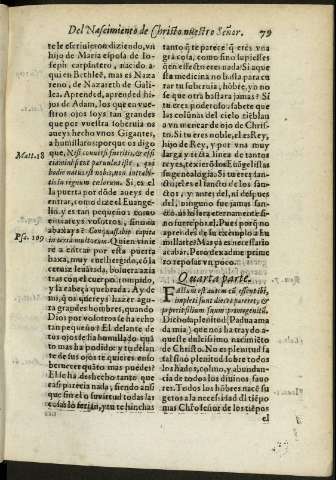 Del Nascimiento de Christo nuestro Señor. 79
te le escriuieron diziendo, vn
hijo de Maria esposa de Io-
seph carpintero, nacido a-
qui en Bethleē, mas es Naza
reno, de Nazareth de Gali-
lea. Aprended, aprended hi-
jos de Adam, los que en vues-
tros ojos soys tan grandes
que por vuestra soberuia os
aueys hecho vnos Gigantes,
a humillaros: porque os digo
que, Nisi conuersi fueritis, & effi
ciamini sicut paruulus iste, qui
hodie natus est nobis, non intrabi-
tis in regnum cœlorum. Si, es assi
la puerta por dōde aueys de
entrar, como dize el Euange-
lio, y es tan pequeña: como
entrareys vosotros, sino os
abaxays? Conquassabit capita
in terra multorum. Quien vinie
re a entrar por esta puerta
baxa, muy cuellerguido, cō la
cerniz leuātada, boluera a zia
tras con ella quebrantada,
y la cabeça rōpida. Ay de
mi, q̄ no quereys hazer agu-
tra grandes hombres, quando
Dios por vosotros se ha echo
tan pequeño? El delante de
tus ojos se ha humillado quā
to mas ha podido: y tu delan-
te de sus ojos te quieres enso-
beruecer quāto mas puedes?
El se ha deshecho tanto que
casi parecia nada, siendo ansi
que sin el o su virtud todas las
cosas lo serian, y tu te hinchas
Matt. 18
Psa. 109
tanto q̄ te parece q̄ eres vna
grā cosa, como sino supiesses
que en esse ser eres nada? Si aque
sta medicina no basta para cu
rar tu soberuia, hōbre, yo no
se que otra bastara jamas? Si
tu eres poderoso: sabete que
las colunas del cielo tieblan
a vn mercar de ojo de Chris-
to. Si tu eres noble, el es Rey,
hijo de Rey, y por vna muy
larga y recta linea de tantos
reyes, texierōlos Euāgelistas
su genealogia. Si tu eres tan-
to, este es el sancto de los san-
ctos, y antes del, ni despues
del, ninguno fue jamas san-
cto, ni lo sera eternamente si-
no fuere por el. Pues porq̄ no
aprendes de su exemplo a hu
millarte? Mas ya es necessario
acabar. Pero dexadme prime
ro reposar vn poco.
Quarta parte.
Factum est autem cū essent ibi,
impleti sunt dies vt pareret, &
peperit filium suum primogenitū.
Dichosa plenitud (Padua ama
da mia) que nos ha traydo a-
queste dulcissimo nacimiēto
de Christo. No es plenitud fa
tal sino plenitud sobre todos
los hados, colmo, y abundan-
cia de todos los diuinos fauo
res. Todos los hōbres nacē su
getos a la necessidad dl tiēpo
mas Christo señor de los tiēpos
el